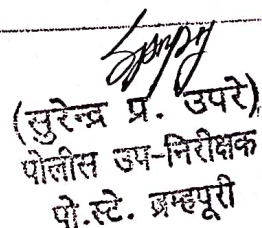 (सुरेन्द्र प्र. उपरे)
पोलीस उप-निरीक्षक
पो.स्टे. ब्रम्हपूरी